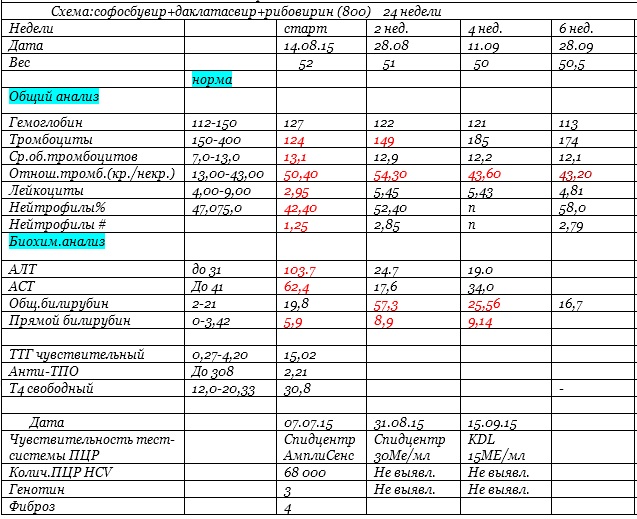 Схема:софосбувир+даклатасвир+рибовирин (800) 24 недели
Недели старт 2 нед. 4 нед. 6 нед.
Дата 14.08.15 28.08 11.09 28.09
Вес 52 51 50 50,5
норма
Общий анализ
Гемоглобин 112-150 127 122 121 113
Тромбоциты 150-400 124 149 185 174
Ср.об.тромбоцитов 7,0-13,0 13,1 12,9 12,2 12,1
Отнош.тромб.(кр./некр.) 13,00-43,00 50,40 54,30 43,60 43,20
Лейкоциты 4,00-9,00 2,95 5,45 5,43 4,81
Нейтрофилы% 47,075,0 42,40 52,40 п 58,0
Нейтрофилы # 1,25 2,85 п 2,79
Биохим.анализ
АЛТ до 31 103.7 24.7 19.0
АСТ До 41 62,4 17,6 34,0
Общ.билирубин 2-21 19,8 57,3 25,56 16,7
Прямой билирубин 0-3,42 5,9 8,9 9,14
ТТГ чувствительный 0,27-4,20 15,02
Анти-ТПО До 308 2,21
Т4 свободный 12,0-20,33 30,8 -
Дата 07.07.15 31.08.15 15.09.15
Чувствительность тест- Спидцентр Спидцентр KDL
системы ПЦР АмплиСенс 30Ме/мл 15МЕ/мл
Колич.ПЦР HCV 68 000 Не выявл. Не выявл.
Генотип 3 Не выявл. Не выявл.
Фиброз 4